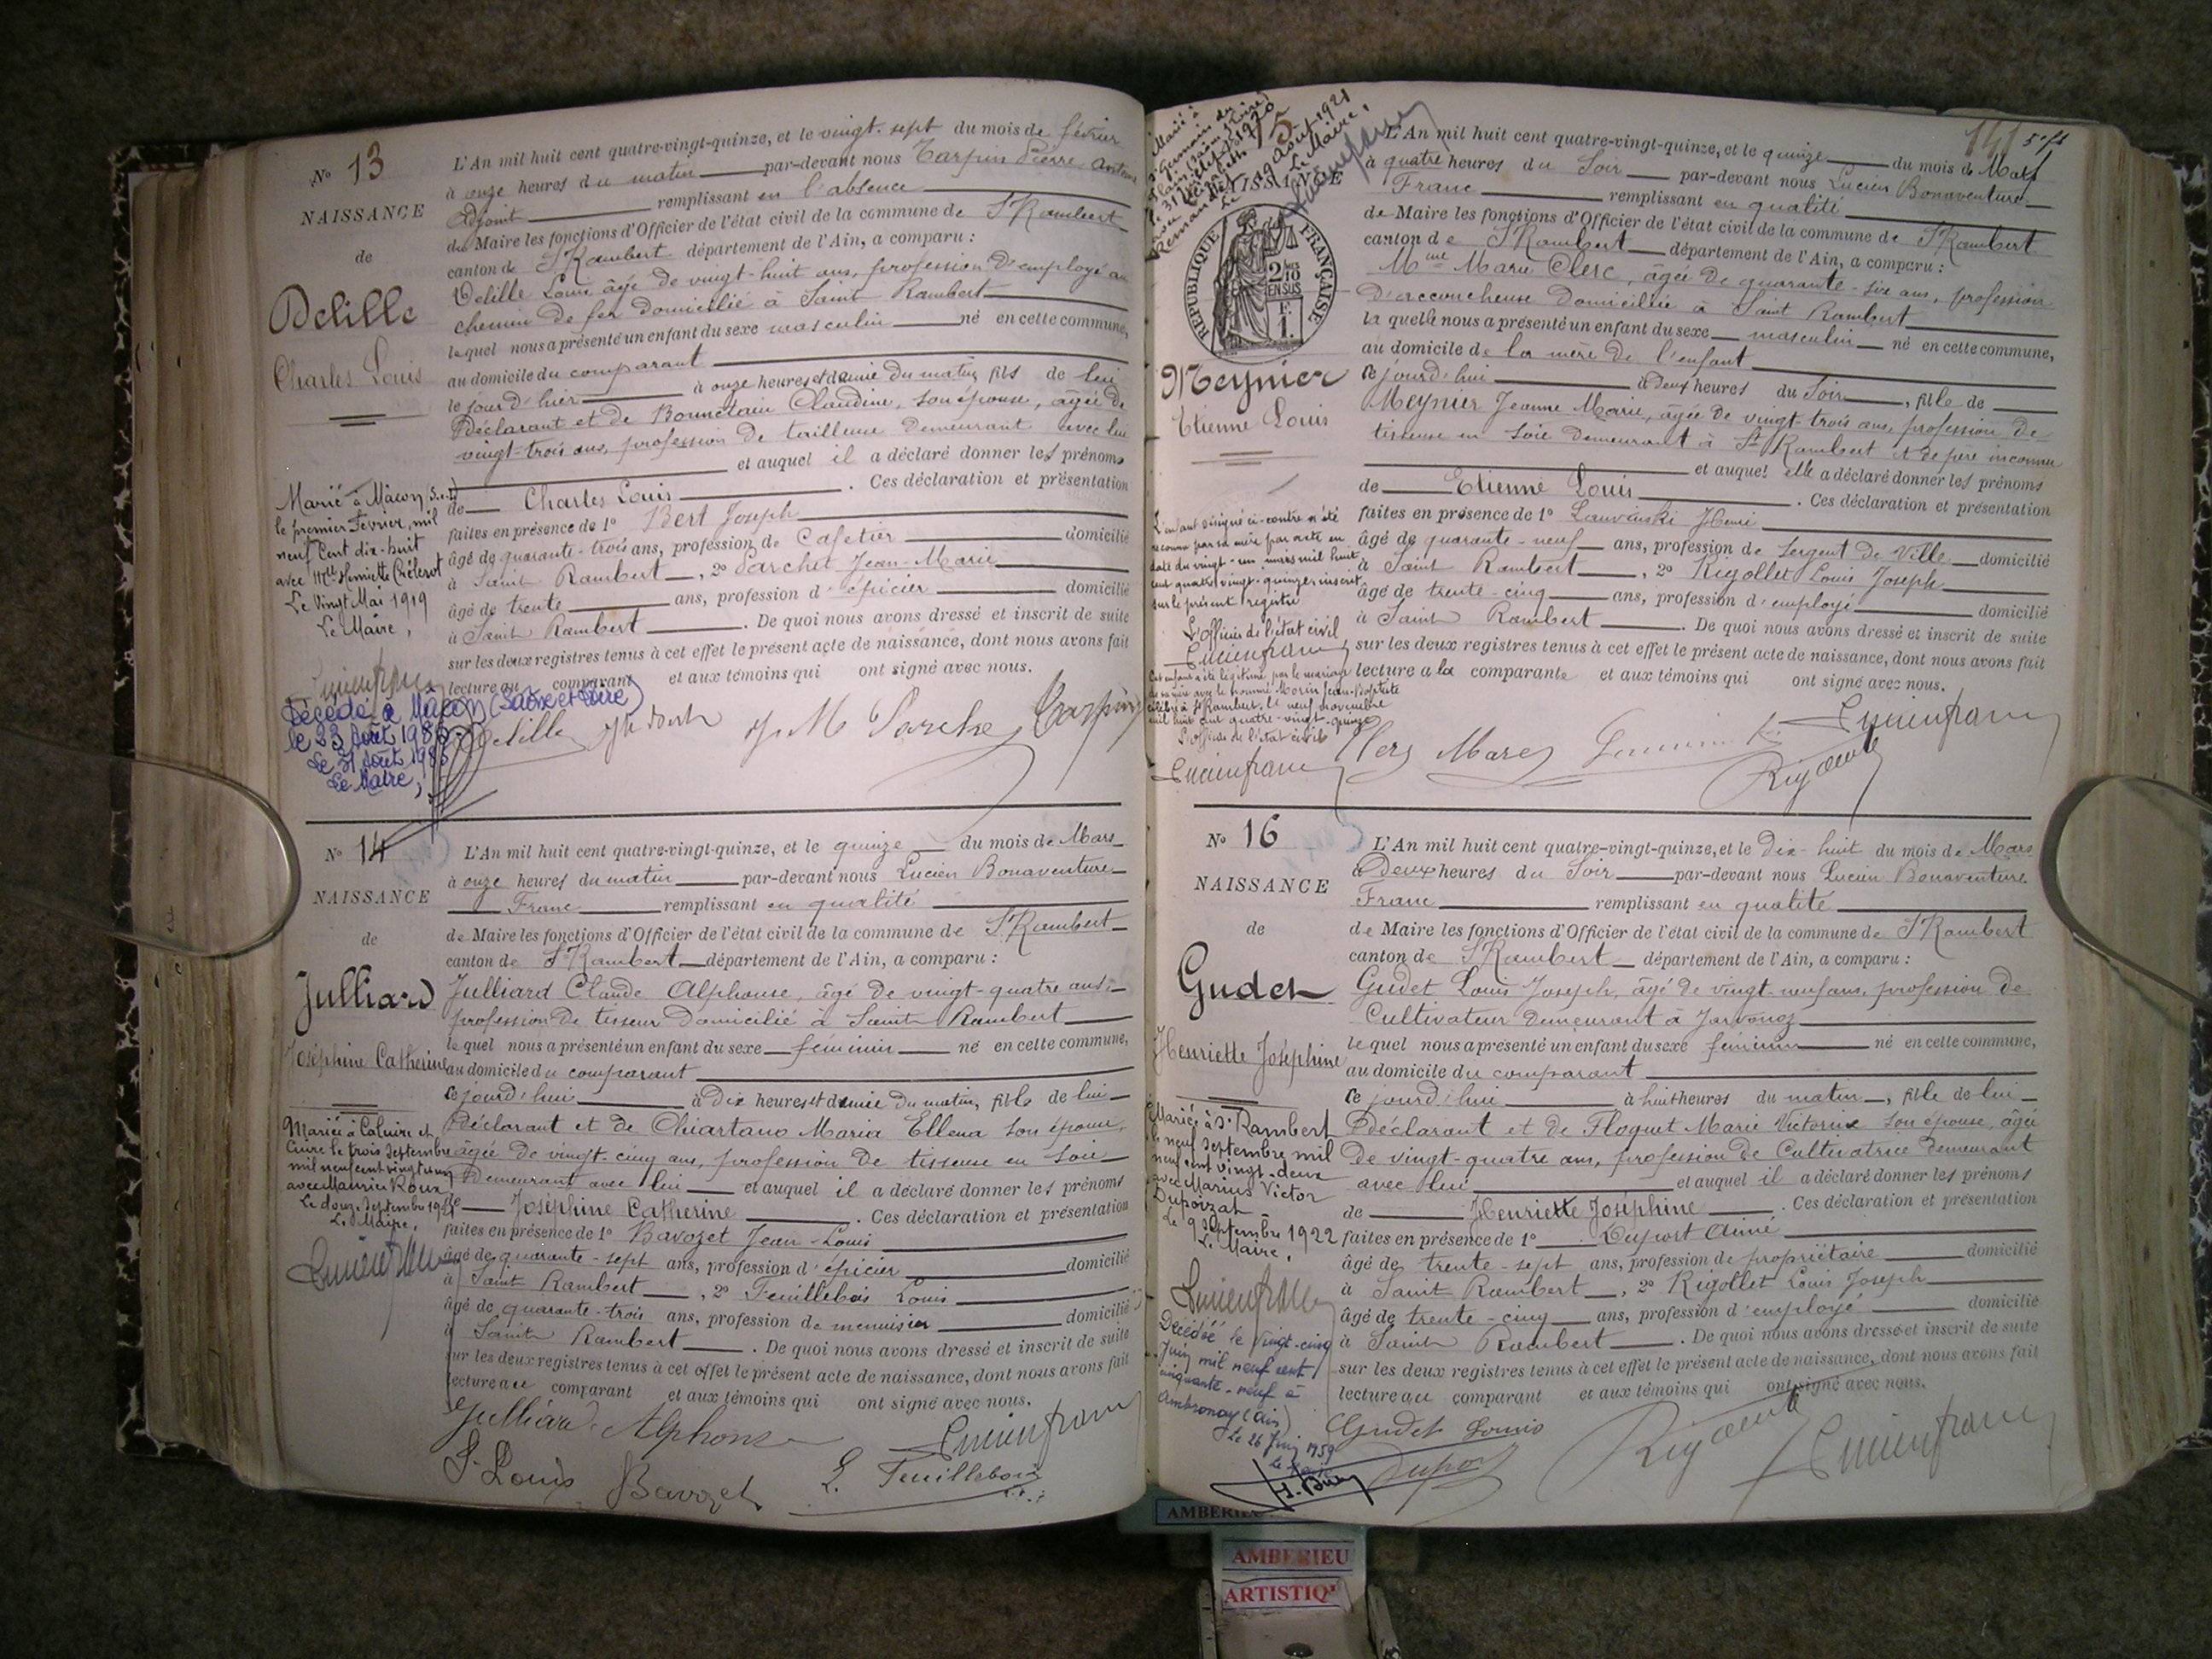 No 13
NAISSANCE
de
Delille
Charles Louis
L'An mil huit cent quatre-vingt-quinze, et le vingt-sept du mois de février
à onze heures du matin par-devant nous Tarpin Pierre Antoine
Adjoint remplissant en l'absence
du Maire les fonctions d'Officier de l'état civil de la commune de St Rambert
canton de St Rambert département de l'Ain, a comparu :
Delille Louis âgé de vingt-huit ans, profession d'employé au
chemin de fer domicilié à Saint Rambert
lequel nous a présenté un enfant du sexe masculin né en cette commune,
au domicile du comparant
le jour d'hier à onze heures et demie du matin, fils de lui
Déclarant et de Bonnetain Claudine, son épouse, âgée de
vingt-trois ans, profession de tailleuse demeurant avec lui
et auquel il a déclaré donner les prénoms
de Charles Louis . Ces déclaration et présentation
faites en présence de 1o Bert Joseph
âgé de quarante-trois ans, profession de Cafetier domicilié
à Saint Rambert , 2o Parchet Jean-Marie
âgé de trente ans, profession d'épicier domicilié
à Saint Rambert . De quoi nous avons dressé et inscrit de suite
sur les deux registres tenus à cet effet le présent acte de naissance, dont nous avons fait
lecture au comparant et aux témoins qui ont signé avec nous.
Marié à Mâcon (S.-L.)
le premier Février, mil
neuf cent dix-huit
avec Mlle Henriette
Le Vingt Mai 1919
Le Maire,
Décédé à Mâcon (Saône et Loire)
le 23 Août
Le 31 Août
Le Maire,
Delille
Tarpin
No 14
NAISSANCE
de
Julliard
Joséphine Catherine
L'An mil huit cent quatre-vingt-quinze, et le quinze du mois de Mars
à onze heures du matin par-devant nous Lucien Bonaventure
Franc remplissant en qualité
de Maire les fonctions d'Officier de l'état civil de la commune de St Rambert
canton de St Rambert département de l'Ain, a comparu :
Julliard Claude Alphonse, âgé de vingt-quatre ans
profession de tisseur domicilié à Saint Rambert
lequel nous a présenté un enfant du sexe féminin né en cette commune,
au domicile du comparant
ce jourd'hui à dix heures et demie du matin, fille de lui
Déclarant et de Chiartano Maria Ellena son épouse,
âgée de vingt-cinq ans, profession de tisseuse en soie
demeurant avec lui et auquel il a déclaré donner les prénoms
de Joséphine Catherine . Ces déclaration et présentation
faites en présence de 1o Bavozet Jean-Louis
âgé de quarante-sept ans, profession d'épicier domicilié
à Saint Rambert , 2o Feuillebois Louis
âgé de quarante-trois ans, profession de menuisier domicilié
à Saint Rambert . De quoi nous avons dressé et inscrit de suite
sur les deux registres tenus à cet effet le présent acte de naissance, dont nous avons fait
lecture au comparant et aux témoins qui ont signé avec nous.
Mariée à Caluire et
Cuire le trois Septembre
mil neuf cent vingt un
avec Maurice Roux
Le douze Septembre 1921
Le Maire,
Lucien Franc
Julliard Alphonse
Lucien franc
J. Louis Bavozet
L. Feuillebois
141
15
Marié à
Le Maire,
NAISSANCE
RÉPUBLIQUE FRANÇAISE
2/10 EN SUS
F. 1.
Meynier
Etienne Louis
L'An mil huit cent quatre-vingt-quinze, et le quinze du mois de Mars
à quatre heures du Soir par-devant nous Lucien Bonaventure
Franc remplissant en qualité
de Maire les fonctions d'Officier de l'état civil de la commune de St Rambert
canton de St Rambert département de l'Ain, a comparu :
Mme Marie Clerc, âgée de quarante-six ans, profession
D'accoucheuse Domiciliée à Saint Rambert
laquelle nous a présenté un enfant du sexe masculin né en cette commune,
au domicile de la mère de l'enfant
ce jourd'hui à deux heures du Soir, fils de
Meynier Jeanne Marie, âgée de vingt-trois ans, profession de
tisseuse en soie demeurant à St Rambert & de père inconnu
et auquel elle a déclaré donner les prénoms
de Etienne Louis . Ces déclaration et présentation
faites en présence de 1o
âgé de quarante-neuf ans, profession de Sergent de Ville domicilié
à Saint Rambert , 2o Rigollet Louis Joseph
âgé de trente-cinq ans, profession d'employé domicilié
à Saint Rambert . De quoi nous avons dressé et inscrit de suite
sur les deux registres tenus à cet effet le présent acte de naissance, dont nous avons fait
lecture a la comparante et aux témoins qui ont signé avec nous.
L'enfant désigné ci-contre a été
reconnu par sa mère par acte en
date du vingt-un mars mil huit
cent quatre vingt-quinze inscrit
sur le présent registre
L'officier de l'état civil
Lucien franc
Cet enfant a été légitimé par le mariage
de sa mère avec le nommé Morin Jean-Baptiste
célébré à St Rambert, le neuf novembre
mil huit cent quatre-vingt-quinze
L'officier de l'état civil
Lucien franc
Lucien franc
No 16
NAISSANCE
de
Gudet
Henriette Joséphine
L'An mil huit cent quatre-vingt-quinze, et le dix-huit du mois de Mars
à Deux heures du Soir par-devant nous Lucien Bonaventure
Franc remplissant en qualité
de Maire les fonctions d'Officier de l'état civil de la commune de St Rambert
canton de St Rambert département de l'Ain, a comparu :
Gudet Louis Joseph, âgé de vingt-neuf ans, profession de
Cultivateur demeurant à Javonoz
lequel nous a présenté un enfant du sexe féminin né en cette commune,
au domicile du comparant
ce jourd'hui à huit heures du matin, fille de lui
Déclarant et de Floquet Marie Victorine son épouse, âgée
De vingt-quatre ans, profession de Cultivatrice demeurant
avec lui et auquel il a déclaré donner les prénoms
de Henriette Joséphine . Ces déclaration et présentation
faites en présence de 1o Duport Aimé
âgé de trente-sept ans, profession de propriétaire domicilié
à Saint Rambert , 2o Rigollet Louis Joseph
âgé de trente-cinq ans, profession d'employé domicilié
à Saint Rambert . De quoi nous avons dressé et inscrit de suite
sur les deux registres tenus à cet effet le présent acte de naissance, dont nous avons fait
lecture au comparant et aux témoins qui ont signé avec nous.
Mariée à St Rambert
le neuf Septembre mil
neuf cent vingt-deux
avec Marius Victor
Dupoizat
Le 9 Septembre 1922
Le Maire,
Lucien franc
Décédée le vingt-cinq
Juin mil neuf cent
cinquante-neuf à
Ambronay (Ain)
Le 26 Juin 1959
Le Maire
Gudet Louis
Duport
Lucien franc
AMBERIEU
AMBERIEU
ARTISTIQ